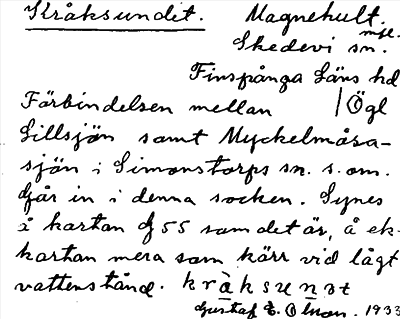 Kråksundet. Magnehult.
Skedevi sn.
Finspånga Läns hd
Förbindelsen mellan / Ögl
Lillsjön samt Myckelmåsa-
sjön i Simonstorps sn. s. om.
går in i denna socken. Synes
å kartan df 55 som det är, å ek-
kartan mera som kärr vid lågt
vattenstånd. kràksunət
Gustaf E. Olsson. 1933